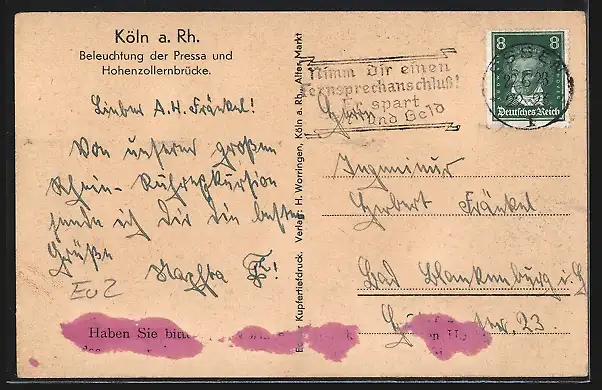 Köln a. Rh.
Beleuchtung der Pressa und
Hohenzollernbrücke.
Lieber A.H. Fränkel!
Von unserer großen
Rhein-Ruhrexkursion
sende ich Dir die besten
Grüße
EuZ
Haben Sie bitte
Echter Kupfertiefdruck. Verlag: H. Worringen, Köln a. Rh., Alter Markt
Nimm dir einen
Fernsprechanschluß!
Er spart
und Geld
8 8
Deutsches Reich
Herrn
Ingenieur
Herbert Fränkel
Bad Blankenburg i.
23.